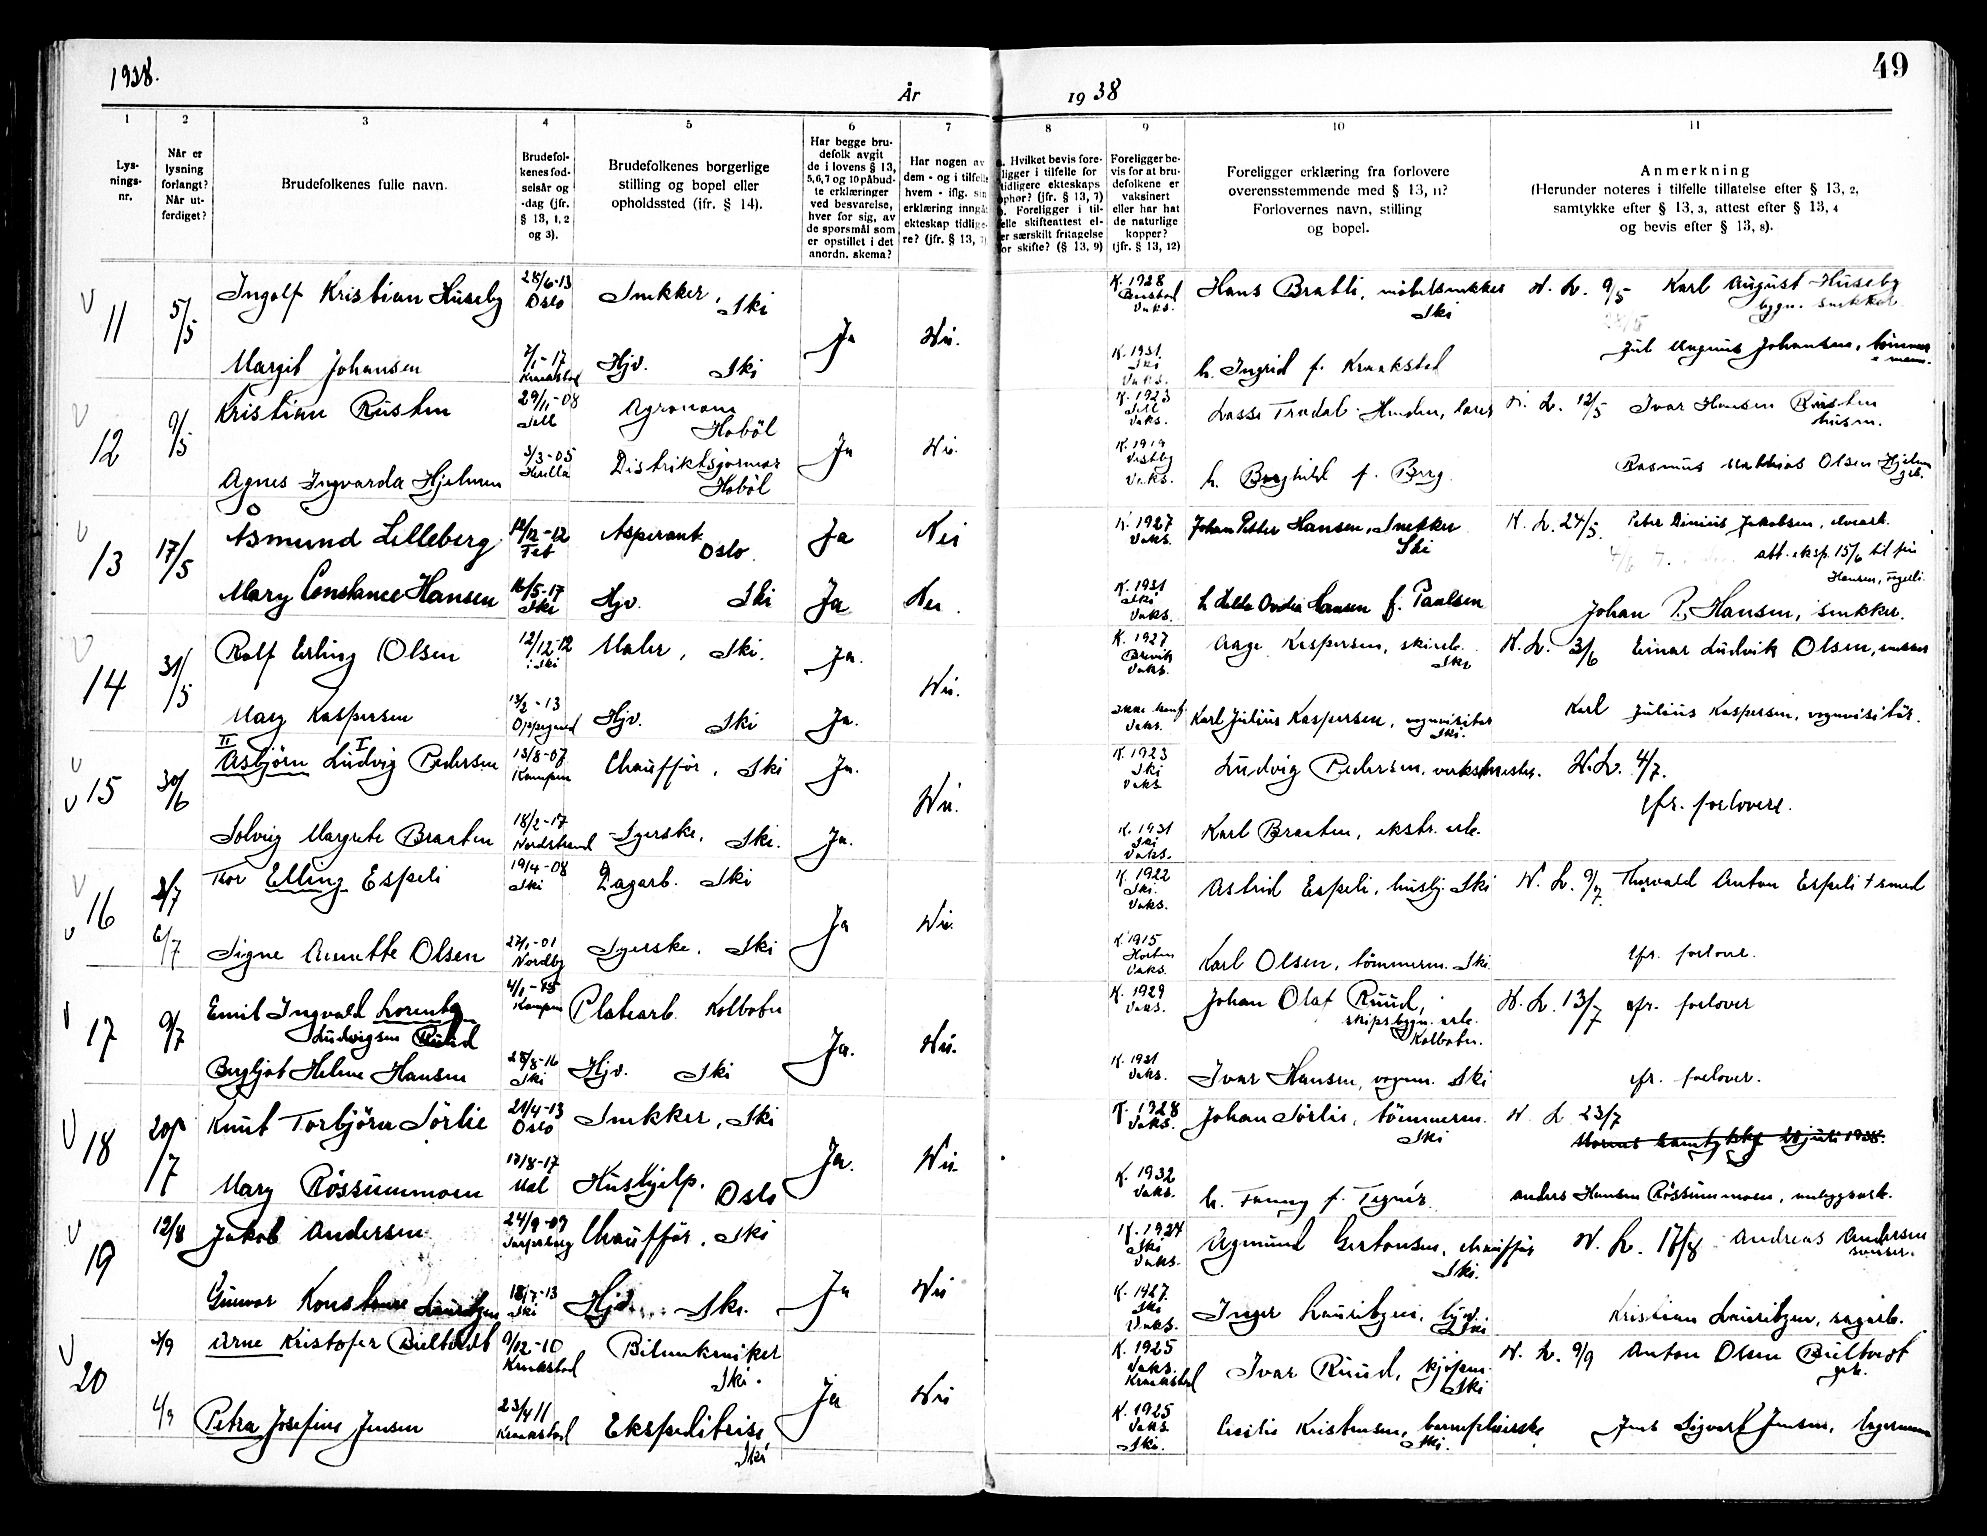 1938.
År
19 38
49
1
2
3
4
5
6
7
8
9
10
11
Lys-
nings-
nr.
Når er
lysning
forlangt?
Når ut-
ferdiget?
Brudefolkenes fulle navn.
Brudefol-
kenes fød-
selsår og
-dag (jfr.
§ 13, 1, 2
og 3).
Brudefolkenes borgerlige
stilling og bopel eller
opholdssted (jfr. § 14).
Har begge bru-
defolk avgit
de i lovens § 13,
5, 6, 7 og 10 påbud-
te erklæringer
ved besvarelse,
hver for sig, av
de spørsmål som
er opstillet i det
anordn. skema?
Har nogen av
dem - og i tilfelle
hvem - iflg. sin
erklæring inngå
ekteskap tidlige-
re? (jfr. § 13, 7)
a. Hvilket bevis fore-
ligger i tilfelle for
tidligere ekteskaps
ophør? (jfr. § 13, 7)
b. Foreligger i til-
felle skifteattest el-
er særskilt fritagelse
for skifte? (§ 13, 9)
Foreligger be-
vis for at bru-
defolkene er
vaksinert
eller har hat
de naturlige
kopper?
(jfr. § 13, 12)
Foreligger erklæring fra forlovere
overensstemmende med § 13, 11?
Forlovernes navn, stilling
og bopel.
Anmerkning
(Herunder noteres i tilfelle tillatelse efter § 13, 2,
samtykke efter § 13, 3, attest efter § 13, 4
og bevis efter § 13, 8).
11 5/5 Ingolf Kristian Huseby 28/6-13 Oslo Snekker, Ski Ja Nei. K. 1928 Vaks. Hans Bratli, møbelsnekker Ski N. L. 9/5 Karl August Huseby bygn. snekker
Margit Johansen 7/1-17 Kraakstad Hjv. Ski K. 1931 Ski Vaks. h. Ingrid f. Kraakstad Johansen, tömmermann.
12 9/5 Kristian Rusten 29/11-08 Agronom Hobøl Ja Nei. K. 1923 Vaks. N. L. 12/5 Ivar Hansen Rusten husm.
Agnes Ingvarda Hjelmen 3/3-05 Hobøl K. 1919 Vestby Vaks. h. Borghild f. Berg Rasmus Mathias Olsen Hjelmen gb.
13 17/5 Åsmund Lilleberg 12/12-12 Tet Aspirant Oslo Ja Nei K. 1927 Vaks. Johan Petter Hansen, Snekker Ski N. L. 24/5 Peter Dinius Jakobsen,
att. eksp. 15/6 til fru
Hansen,
Mary Constance Hansen 16/5-17 Ski Hjv. Ski Ja Nei. K. 1931 Ski Vaks. h Hansen f. Paulsen Johan P. Hansen, snekker.
14 31/5 Rolf Erling Olsen 12/12-12 i Ski Maler, Ski. Ja. Nei. K. 1927 Brevik Vaks. Aage Kaspersen, Ski N. L. 3/6 Einar Ludvik Olsen,
Mary Kaspersen 13/2-13 Oppegaard Hjv. Ski Ja. Ikke konf. Vaks. Karl Julius Kaspersen, vognvisitør Ski. Karl Julius Kaspersen, vognvisitør.
15 30/6 II Asbjörn I Ludvig Pedersen 13/8-07 Kampen Chaufför, Ski Ja. Nei. K. 1923 Ski Vaks Ludvig Pedersen, verkstmester. N. L. 4/7.
cfr. forlovere.
Solveig Margrete Braaten 18/2-17 Nordstrand Syerske, Ski. Ja. K. 1931 Ski Vaks. Karl Braaten, ekstr. arb.
16 2/7 Thor Elling Espeli 19/4-08 Ski Dagarb. Ski Ja Nei. K. 1922 Ski. Vaks. Astrid Espeli, husbj. Ski N. L. 9/7. Thorvald Anton Espeli † smed
6/7 Signe Annette Olsen 27/1-01 Nordby Syerske. Ski K. 1915 Horten Vaks. Karl Olsen, tömmerm. Ski. cfr. forlover.
17 9/7 Emil Ingvald Lorentz 4/1-15 Kampen Platearb. Kolbotn Ja. Nei. K. 1929 Vaks. Johan Olaf Ruud, skipsbygn. arb. Kolbotn. N. L. 13/7 cfr. forlover
Ludvigsen Ruud
Bergljot Helene Hansen 28/8-16 Ski Hjv. Ski K. 1931 Vaks. Ivar Hansen, vognm. Ski cfr. forlover.
18 20/7 Knut Torbjörn Sörlie 21/4-13 Oslo Snekker, Ski Ja. Nei. K. 1928 Vaks. Johan Sörlie, tömmerm. Ski N. L. 23/7
Mary Rössummoen 17/8-17 Hushjelp. Oslo K. 1932 Vaks. h. Fanny f. Tegnér. Anders Hansen Rössummoen, anleggsarb.
19 12/8 Jakob Andersen 24/9-09 Chaufför. Ski Ja Nei K. 1924 Ski Vaks. Agmund Gertonsen, chaufför Ski. N. L. 17/8 Andreas Andersen
Gunvor Konstanse Lauritzen 18/7-13 Ski Hjv. Ski. K. 1927. Ski Vaks. Inger Lauritzen, Ski Kristian Lauritzen, sagarb.
20 3/9 Arne Kristofer Bulltvedt 9/12-10 Kraakstad Bilmekaniker Ski. Ja Nei K. 1925 Vaks. Kraakstad Ivar Ruud, Ski N. L. 9/9 Anton Olsen gb.
4/9 Petra Josefine Jensen 23/4 11 Kraakstad Ekspeditrise Ski K. 1925 Vaks. Ski. Cecilie Kristensen, barnepleierske Ski. Jens Sigvart Jensen, lagermann